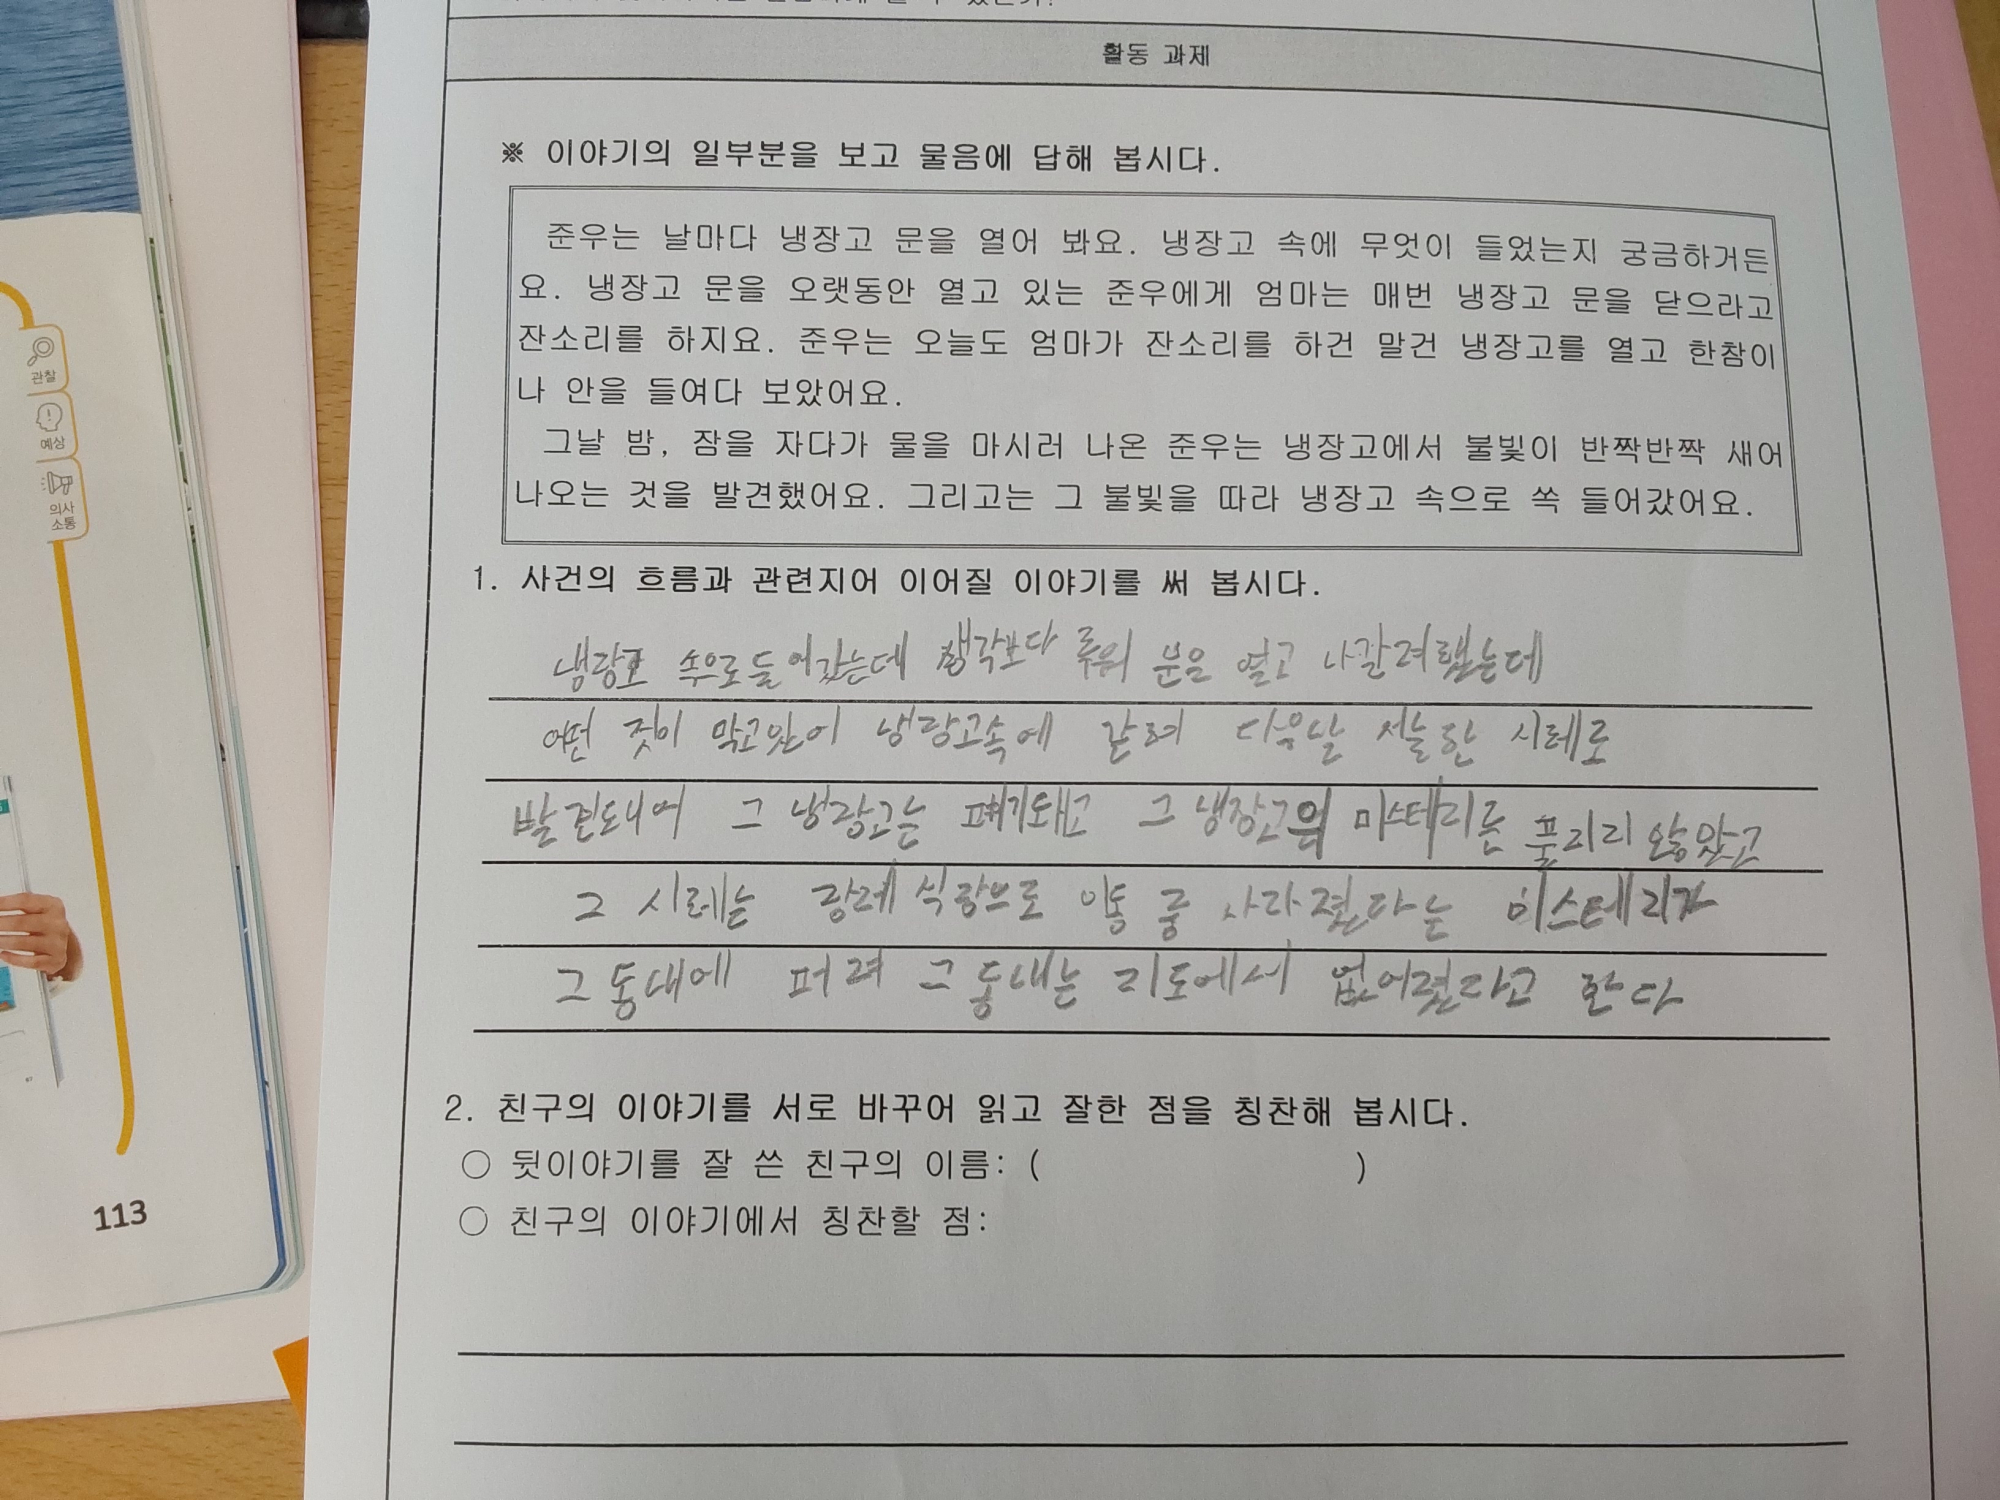 활동 과제
※ 이야기의 일부분을 보고 물음에 답해 봅시다.
준우는 날마다 냉장고 문을 열어 봐요. 냉장고 속에 무엇이 들었는지 궁금하거든
요. 냉장고 문을 오랫동안 열고 있는 준우에게 엄마는 매번 냉장고 문을 닫으라고
잔소리를 하지요. 준우는 오늘도 엄마가 잔소리를 하건 말건 냉장고를 열고 한참이
나 안을 들여다 보았어요.
그날 밤, 잠을 자다가 물을 마시러 나온 준우는 냉장고에서 불빛이 반짝반짝 새어
나오는 것을 발견했어요. 그리고는 그 불빛을 따라 냉장고 속으로 쏙 들어갔어요.
1. 사건의 흐름과 관련지어 이어질 이야기를 써 봅시다.
냉장고 속으로 들어갔는데 생각보다 추워 문을 열고 나갈려했는데
어떤 것이 막고있어 냉장고속에 갇혀 다음날 서늘한 시체로
발견되어 그 냉장고는 폐기돼고 그 냉장고의 미스테리는 풀리지 않았고
그 시체는 장례식장으로 이동 중 사라졌다는 미스테리가
그 동내에 퍼져 그 동내는 지도에서 없어졌다고 한다
2. 친구의 이야기를 서로 바꾸어 읽고 잘한 점을 칭찬해 봅시다.
○ 뒷이야기를 잘 쓴 친구의 이름: ( )
○ 친구의 이야기에서 칭찬할 점:
관찰
예상
의사
소통
113